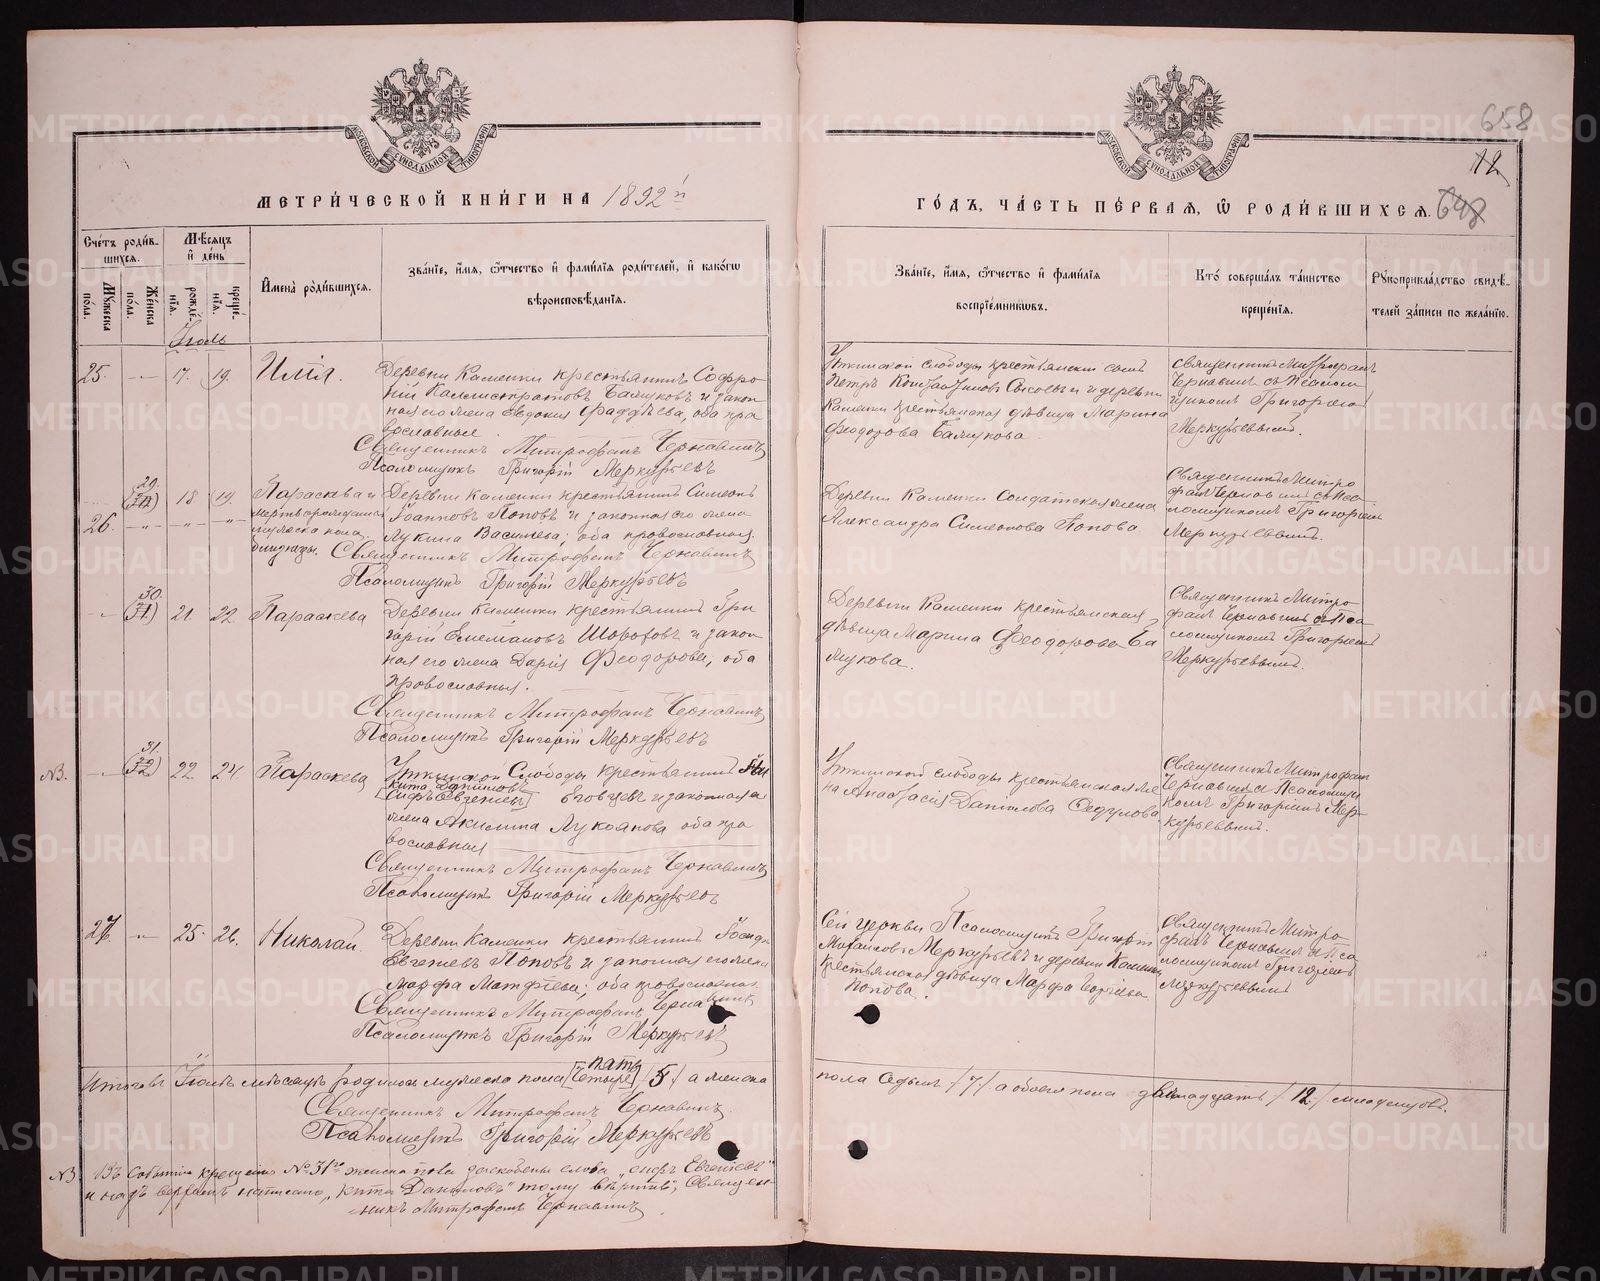 658
12
648
МОСКОВСКОЙ СѴНОДАЛЬНОЙ ТИПОГРАФІИ
МОСКОВСКОЙ СѴНОДАЛЬНОЙ ТИПОГРАФІИ
МЕТРИ́ЧЕСКОЙ КНИ́ГИ НА 1892й
ГО́ДЪ, ЧА́СТЬ ПЕ́РВАЯ, Ѡ РОДИ́ВШИХСЯ.
Сче́тъ роди́в-
шихся.
Мꙋжеска по́ла.
Же́нска по́ла.
Мѣ́сяцъ и де́нь
рожде́нїя.
креще́нїя.
Имена̀ роди́вшихся.
Зва́нїе, и́мя, ѻ́тчество и фами́лїя роди́телей, и како́гѡ
вѣроисповѣ́данїя.
Зва́нїе, и́мя, ѻ́тчество и фами́лїя
воспрїе́мникѡвъ.
Кто̀ соверша́лъ та́инство
креще́нїя.
Рꙋкоприкла́дство свидѣ́-
телей за́писи по жела́нїю.
Іюль
25. — 17. 19. Илія.
Деревни Каменки крестьянинъ Софро-
ній Балуковъ и закон
ная его жена Евдокія Фаддѣева, оба пра
вославные.
Священникъ Митрофанъ Чернавинъ
Псаломщикъ Григорій Меркурьевъ
Уткинской слободы крестьянскій сынъ
Петръ Константиновъ Сысоевъ и деревни
Каменки крестьянская дѣвица Марина
Феодорова Балукова.
Священникъ Митрофанъ
Чернавинъ съ Псалом
щикомъ Григоріемъ
Меркурьевымъ.
29. 18 19. Параскева и
26. мертворожденный
мужеска пола
близнецы.
Деревни Каменки крестьянинъ Симеонъ
Іоанновъ Поповъ и законная его жена
Лукина Васильева; оба православныя.
Священникъ Митрофанъ Чернавинъ
Псаломщикъ Григорій Меркурьевъ
Деревни Каменки Солдатская жена
Александра Симеонова Попова
Священникъ Митро
фанъ Чернавинъ съ Пса
ломщикомъ Григоріемъ
Меркурьевымъ.
30. 21. 22. Параскева
Деревни Каменки крестьянинъ Гри
горій Емеліановъ Шороховъ и закон
ная его жена Дарія Феодорова, оба
православныя.
Священникъ Митрофанъ Чернавинъ
Псаломщикъ Григорій Меркурьевъ
Деревни Каменки крестьянская
дѣвица Марина Феодорова Ба
лукова.
Священникъ Митро
фанъ Чернавинъ съ Пса
ломщикомъ Григоріемъ
Меркурьевымъ.
NB. 31. 22 24. Параскева
Уткинской Слободы крестьянинъ Ни
кита Даниловъ
[сифъ Евгеніевъ] Еговцевъ и законная
жена Акилина Лукоянова оба пра
вославныя
Священникъ Митрофанъ Чернавинъ
Псаломщикъ Григорій Меркурьевъ
Уткинской слободы крестьянская же
на Анастасія Данілова Федулова
Священникъ Митрофанъ
Чернавинъ съ Псаломщи
комъ Григоріемъ Мер-
курьевымъ.
27. 25. 26. Николай.
Деревни Каменки крестьянинъ
Евгеніевъ Поповъ и законная его жена
Марфа Матфіева; оба православныя
Священникъ Митрофанъ Чернавинъ
Псаломщикъ Григорій Меркурьевъ
Сей церкви Псаломщикъ Григорій
Михайловъ Меркурьевъ и деревни Каменки
крестьянская дѣвица Марфа Сергіева
Попова.
Священникъ Митро
фанъ Чернавинъ съ Пса
ломщикомъ Григоріемъ
Меркурьевымъ
Итого въ Іюлѣ мѣсяцѣ родилось мужеска пола пять [четыре] /5/ а женска
пола Седьмь /7/ а обоего пола двенадцать /12/ младенцовъ.
Священникъ Митрофанъ Чернавинъ.
Псаломщикъ Григорій Меркурьевъ
NB. Въ событіи крещенія № 31го женска пола заскоблены слова „сифъ Евгеніевъ"
и надъ верхомъ написано „кита Даниловъ" тому вѣрить; Священ-
никъ Митрофанъ Чернавинъ
METRIKI.GASO-URAL.RU